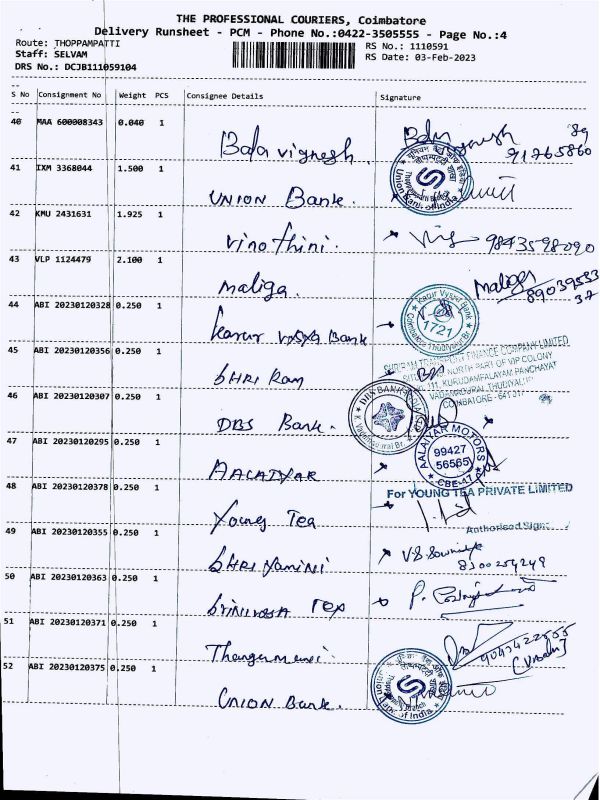 THE PROFESSIONAL COURIERS, Coimbatore
Delivery Runsheet - PCM - Phone No.:0422-3505555 - Page No.:4
Route: THOPPAMPATTI
Staff: SELVAM
DRS No.: DCJB111059104
RS No.: 1110591
RS Date: 03-Feb-2023
S No Consignment No Weight PCS Consignee Details Signature
40 MAA 600008343 0.040 1 Bala vignesh.
41 IXM 3368044 1.500 1 UNION Bank.
Union Bank of India
42 KMU 2431631 1.925 1 Vinothini. 9843598090
43 VLP 1124479 2.100 1 Maliga. Maliga
89039533
37
44 ABI 20230120328 0.250 1 karur vysya Bank
Karur Vysya Bank
1721
45 ABI 20230120356 0.250 1 SHRI Ram
SHRIRAM TRANSPORT FINANCE COMPANY LIMITED
NORTH PART OF VIP COLONY
111, KURUDAMPALAYAM PANCHAYAT
VADAMADURAI, THUDIYALUR
COIMBATORE - 641 017
46 ABI 20230120307 0.250 1 DBS Bank.
DBS BANK INDIA
47 ABI 20230120295 0.250 1 AALAIYAR
AALAIYAR MOTORS
99427
56565
CBE-47
48 ABI 20230120378 0.250 1 Young Tea
For YOUNG TEA PRIVATE LIMITED
Authorised Sign
49 ABI 20230120355 0.250 1 SHRI Yamini
8300254249
50 ABI 20230120363 0.250 1 Srinivasa Tex
51 ABI 20230120371 0.250 1
52 ABI 20230120375 0.250 1 UNION Bank.
Union Bank of India